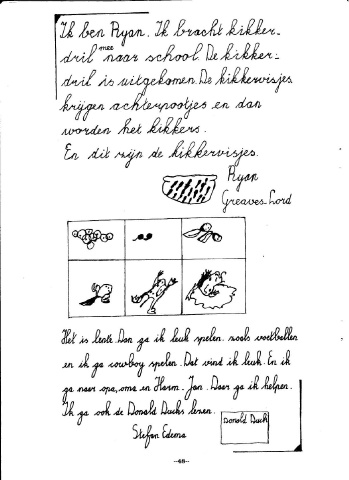 Ik ben Ryan. Ik bracht kikker-
dril mee naar school De kikker-
dril is uitgekomen. De kikkervisjes
krijgen achterpootjes en dan
worden het kikkers.
En dit zijn de kikkervisjes.
Ryan
Greaves-Lord
Het is lente Dan ga ik leuk spelen. zoals voetballen
en ik ga cowboy spelen. Dat vind ik leuk. En ik
ga naar opa, oma en Harm. Jan. Daar ga ik helpen.
Ik ga ook de Donald Ducks lezen.
Donald Duck
Stefan Edema
--48--